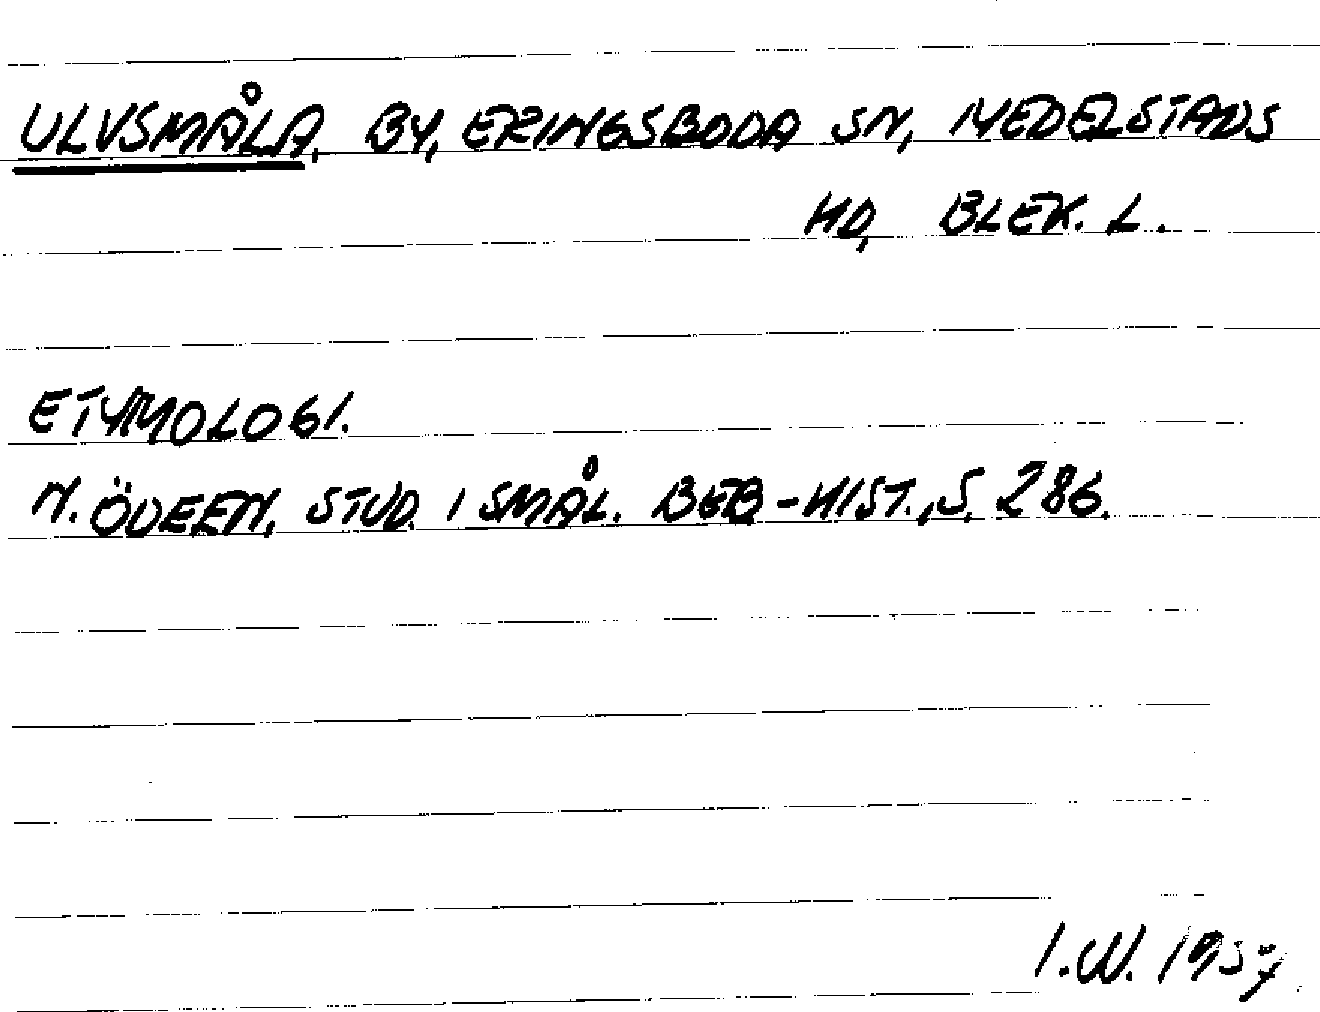 ULVSMÅLA, BY, ERINGSBODA SN, MEDELSTADS
HD, BLEK. L.
ETYMOLOGI.
N. ÖDEEN, STUD. I SMÅL. BEB-HIST., S. 286.
I.W. 1957